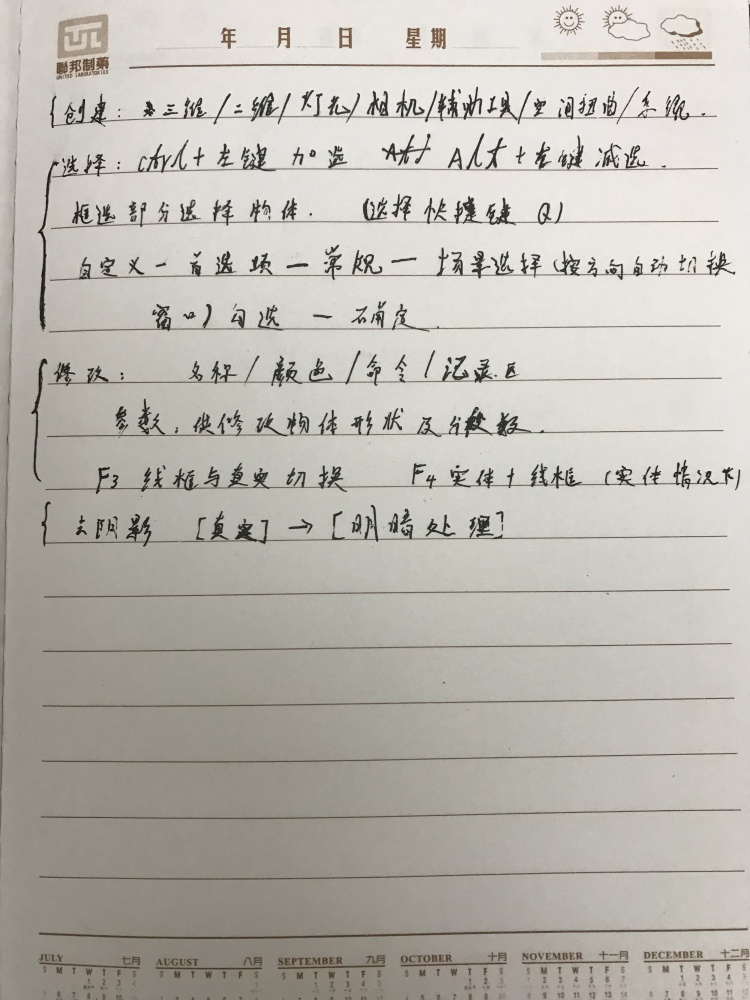 聯邦制藥
UNITED LABORATORIES
年 月 日 星期
创建：三维/二维/灯光/相机/辅助工具/空间扭曲/系统.
选择：ctrl+左键 加选 Alt+左键 减选.
框选部分选择物体. (选择快捷键 Q)
自定义—首选项—常规—场景选择(按方向自动切换
窗口)勾选—确定.
修改： 名称/颜色/命令/记录区
参数：供修改物体形状及分段数.
F3 线框与真实切换 F4 实体+线框 (实体情况下)
去阴影 [真实]→[明暗处理]
JULY 七月 AUGUST 八月 SEPTEMBER 九月 OCTOBER 十月 NOVEMBER 十一月 DECEMBER 十二月
S M T W T F S S M T W T F S S M T W T F S S M T W T F S S M T W T F S S M T W T F S